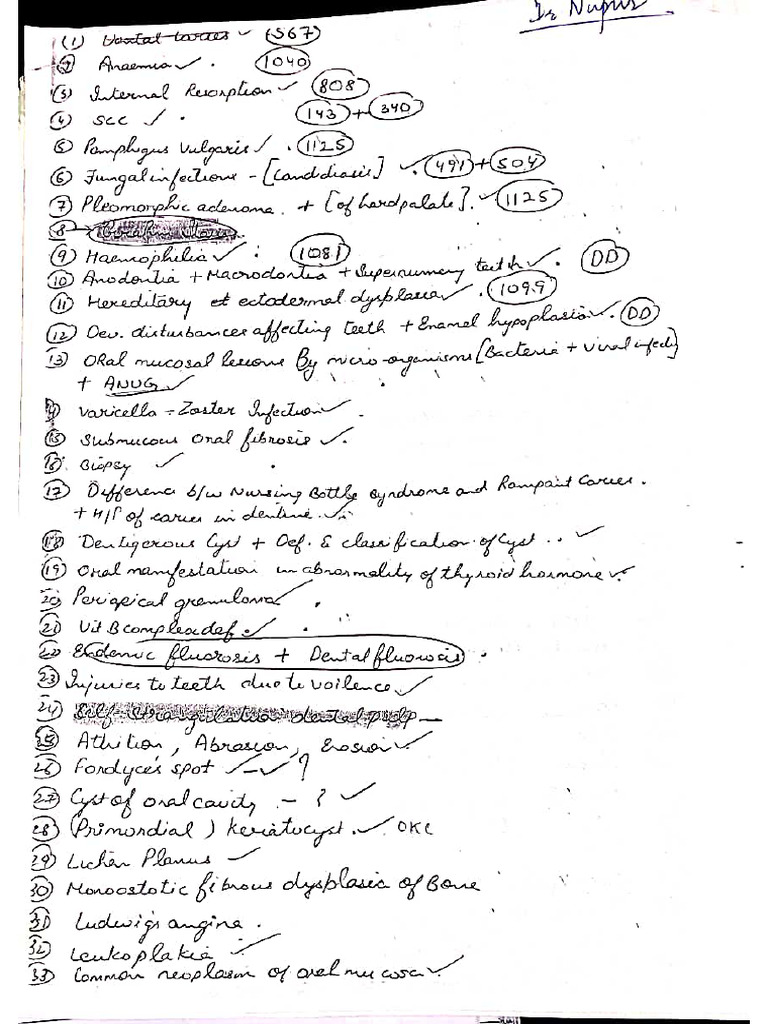 Dr Nupur
(1) Dental Caries ✓ (567)
(2) Anaemia ✓ . (1040)
(3) Internal Resorption ✓ (808)
(4) SCC ✓ . (143) + (340)
(5) Pamphigus Vulgaris ✓ . (1125)
(6) Fungal infections - [Candidiasis] ✓ (491) + (504)
(7) Pleomorphic adenoma + [of hard palate]. ✓ (1125)
(8)
(9) Haemophilia ✓ : (1081)
(10) Anodontia + Macrodontia + Supernumery teeth ✓ . (DD)
(11) Hereditary et ectodermal dysplasia ✓ . (1099)
(12) Dev. disturbances affecting teeth + Enamel hypoplasion ✓. (DD)
(13) ORal mucosal lesions By micro-organisms [Bacteria + Viral infectn]
+ ANUG ✓
(14) Varicella - Zoster Infection ✓ .
(15) Submucous oral fibrosis ✓ .
(16) Biopsy ✓ .
(17) Difference b/w Nursing Bottle Syndrome and Rampant Caries.
+ H/P of caries in dentine. ✓
(18) Dentigerous Cyst + Def. & classification of Cyst .. ✓
(19) Oral manifestation in abnormality of thyroid hormone ✓
(20) Periapical granuloma ✓ .
(21) Vit B complex def. ✓ .
(22) Endemic fluorosis + Dental fluorosis .
(23) Injuries to teeth due to voilence ✓
(24) Self Strangulation dental pulp -
(25) Attrition, Abrasion, Erosion ✓
(26) Fordyce's spot ✓ - ✓ ?
(27) Cyst of oral cavity - ? ✓
(28) (Primordial) Keriatocyst. ✓ OKC
(29) Lichen Planus ✓
(30) Monoostotic fibrous dysplasia of Bone
(31) Ludwigs angina .
(32) Leukoplakia ✓
(33) Common neoplasm of oral mucosa ✓